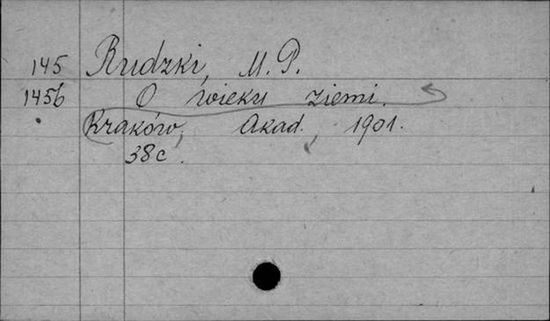 145 Rudzki, M. P.
1456 O wieku ziemi.
Kraków, Akad., 1901.
38 c.